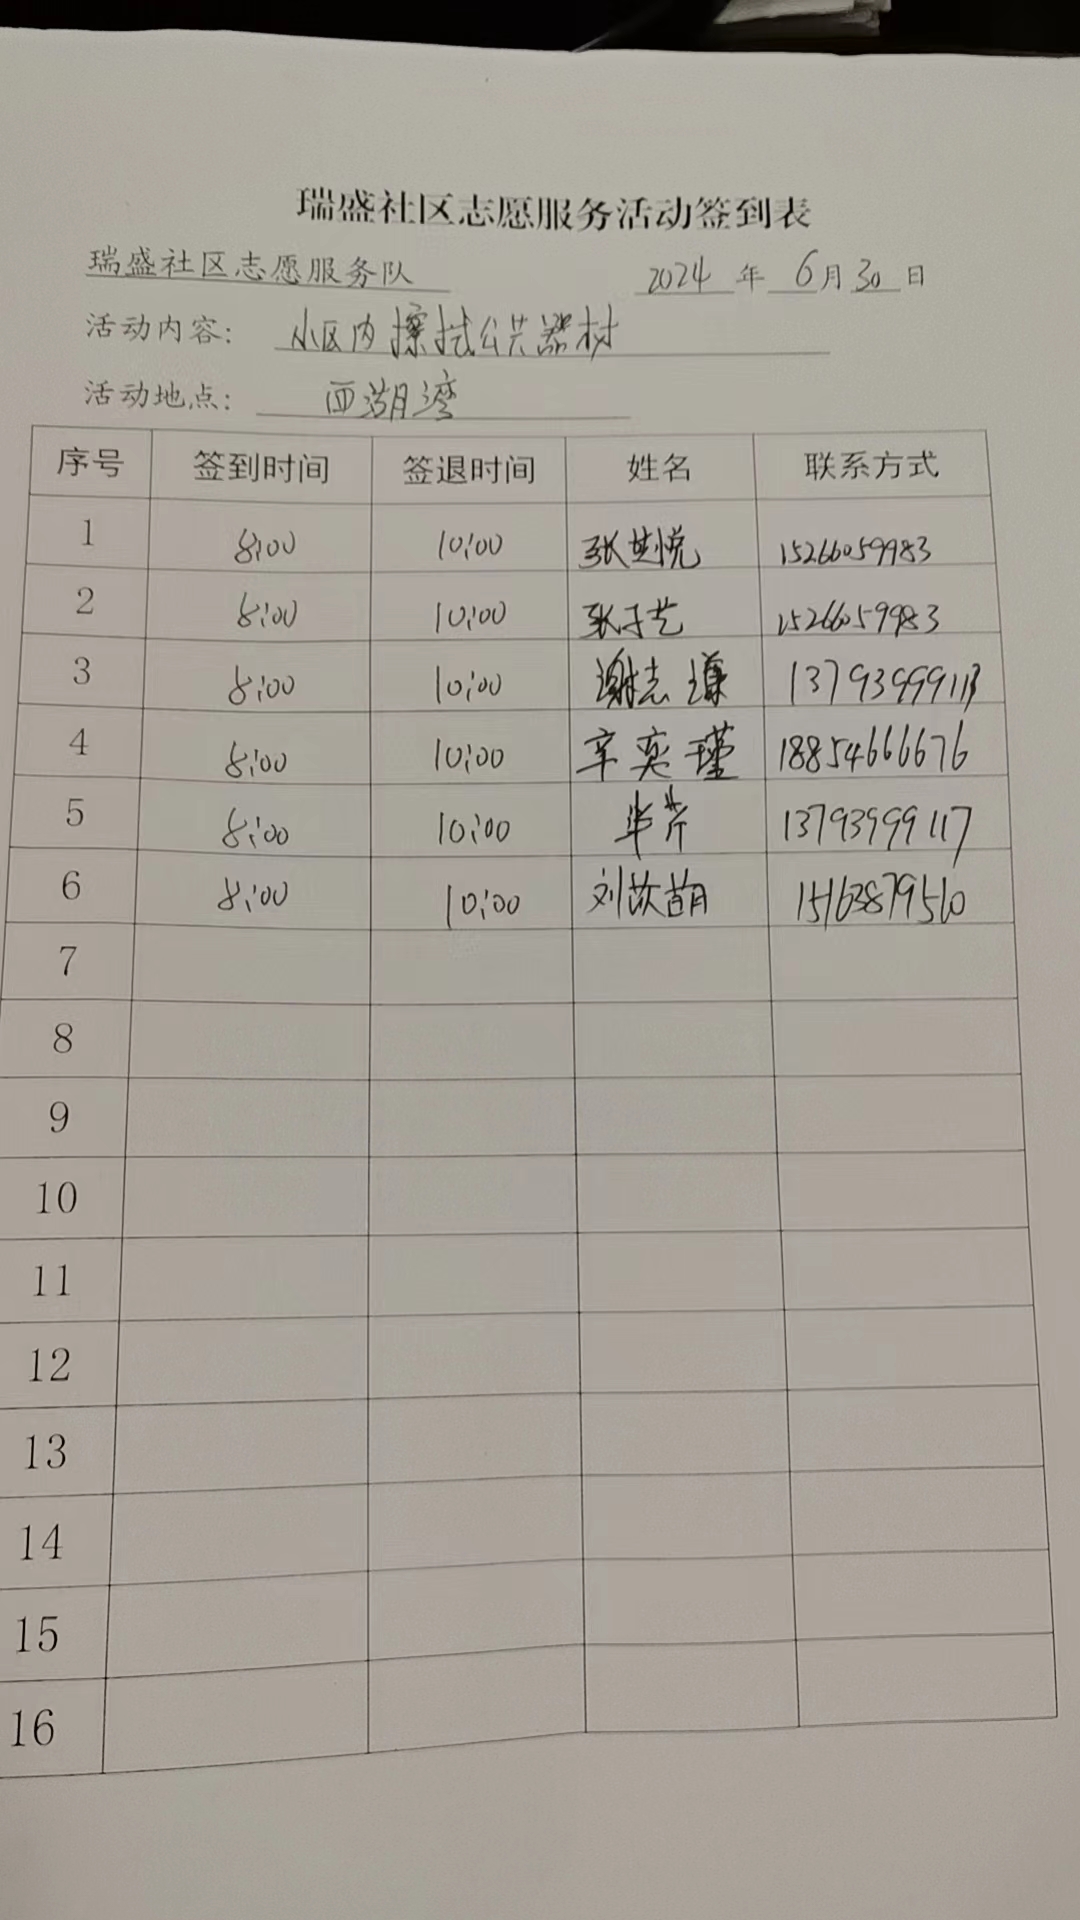 瑞盛社区志愿服务活动签到表
瑞盛社区志愿服务队 2024 年 6月30日
活动内容: 小区内擦拭公共器材
活动地点: 西湖湾
序号 签到时间 签退时间 姓名 联系方式
1 8:00 10:00 张芸悦 15266059983
2 8:00 10:00 张子艺 15266059983
3 8:00 10:00 谢志谦 13793999113
4 8:00 10:00 辛奕瑾 18854666676
5 8:00 10:00 芹 13793999117
6 8:00 10:00 刘 15163879510
7
8
9
10
11
12
13
14
15
16